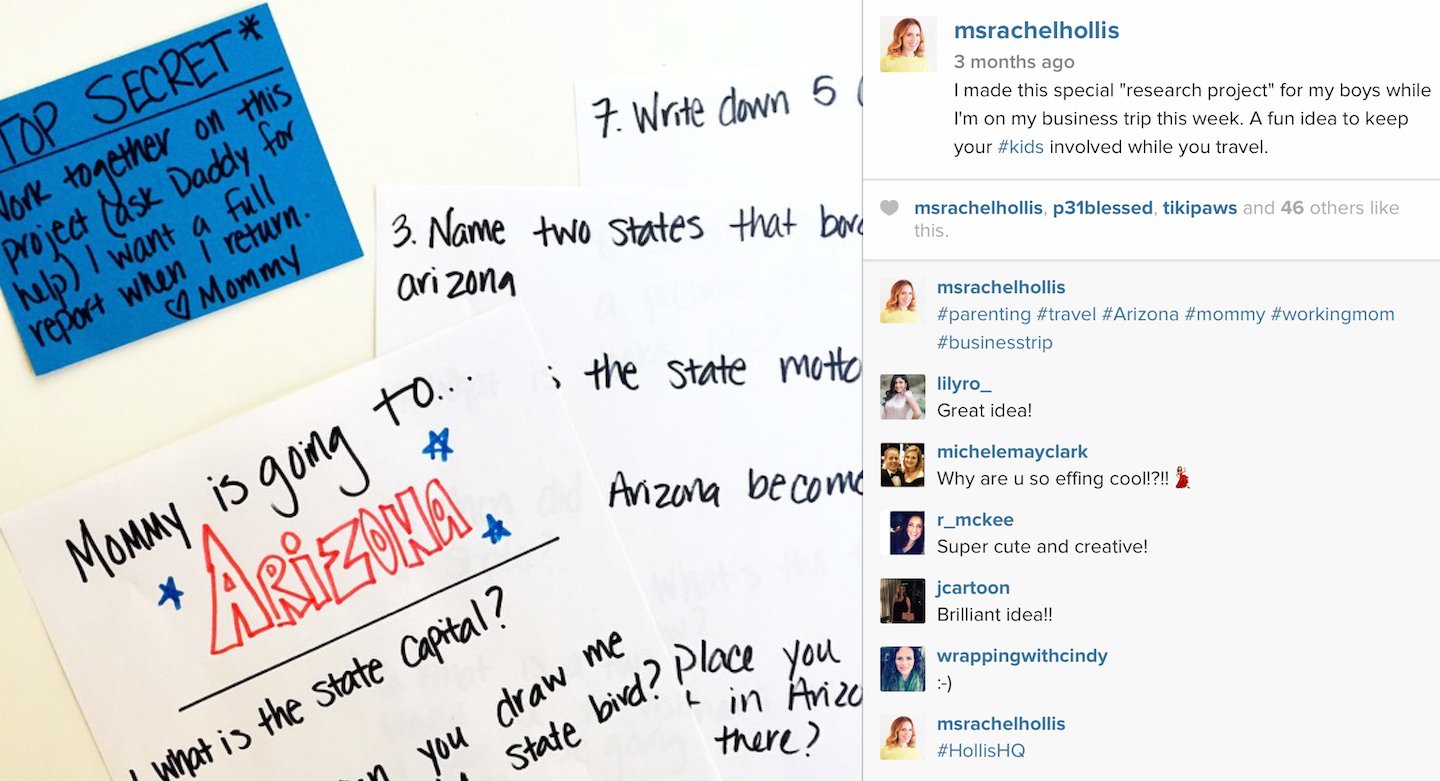 TOP SECRET*
Work together on this
project (ask Daddy for
help) I want a full
report when I return.
♡ Mommy
7. Write down 5
3. Name two states that
arizona
the state motto
Arizona become
place you
in
there?
Mommy is going to...
ARIZONA
What is the State Capital?
you draw me
state bird?
msrachelhollis
3 months ago
I made this special "research project" for my boys while
I'm on my business trip this week. A fun idea to keep
your #kids involved while you travel.
msrachelhollis, p31blessed, tikipaws and 46 others like
this.
msrachelhollis
#parenting #travel #Arizona #mommy #workingmom
#businesstrip
lilyro_
Great idea!
michelemayclark
Why are u so effing cool!?!! 💃
r_mckee
Super cute and creative!
jcartoon
Brilliant idea!!
wrappingwithcindy
:-)
msrachelhollis
#HollisHQ